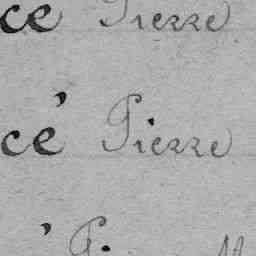 ce Pierre
cé Pierre